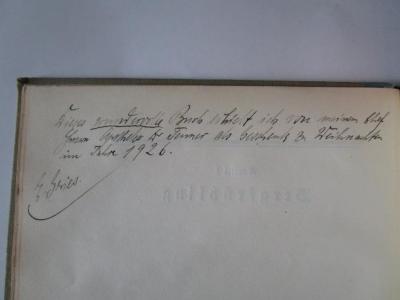 Dieses wundervolle Buch erhielt ich von meinem Chef
Herrn Apotheker Dr Tenner als Geschenk zu Weihnachten
im Jahre 1926.
Gries.
Bergfrühling